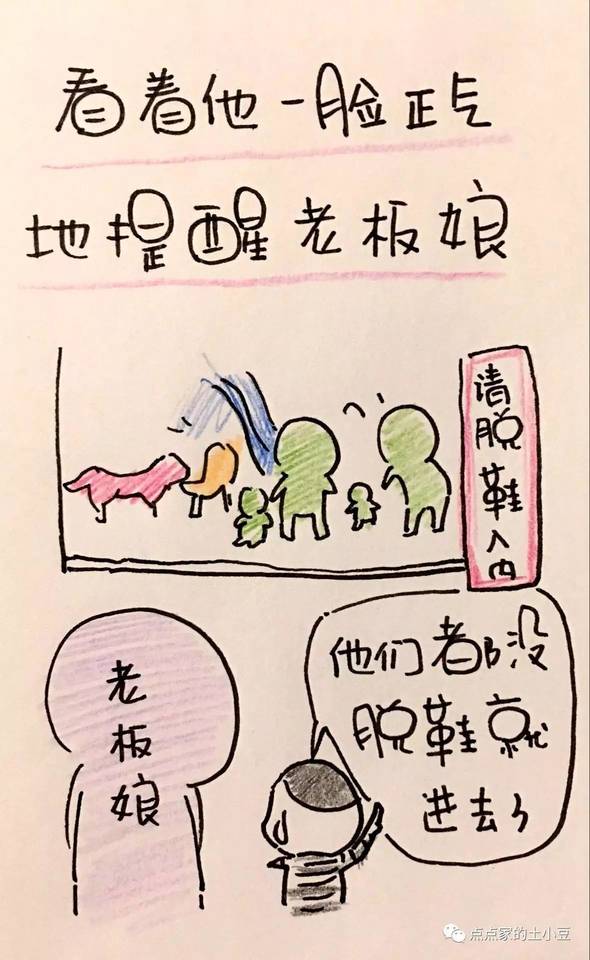 看着他一脸正气
地提醒老板娘
请脱鞋入内
他们都没
脱鞋就
进去了
老板娘
点点家的土小豆